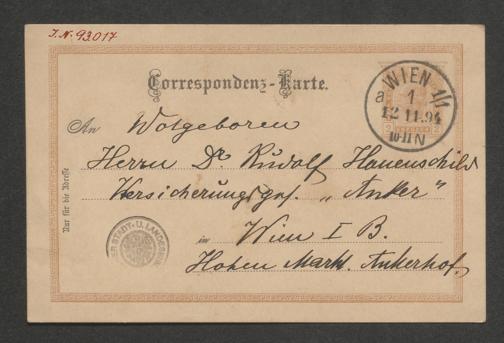 J.N. 93.017
Correspondenz-Karte.
WIEN 1/1
a 1
12 11.94
10-11 N
2 2
An Wolgeboren
Herrn Dr Rudolf Hauenschild
Versicherungsges. „Anker"
in Wien I B.
Hohen Markt. Ankerhof.
Nur für die Adresse
STADT- U. LANDESBIB